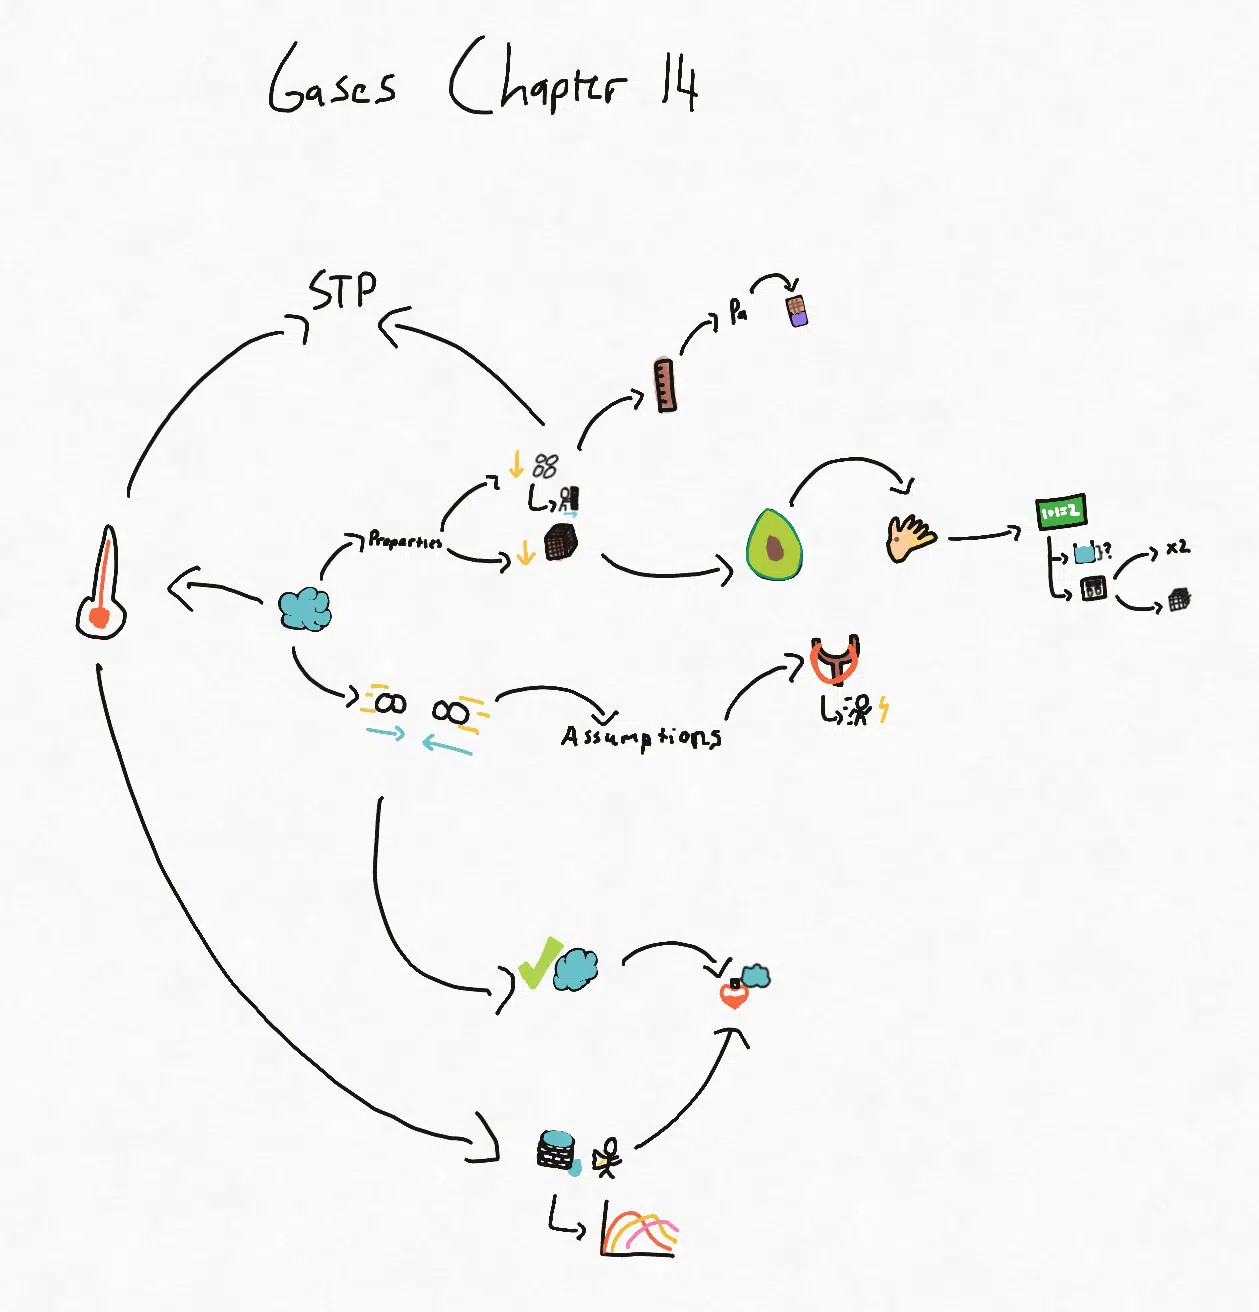 Gases Chapter 14
STP
Pa
Properties
1+1=2
?
x2
Assumptions